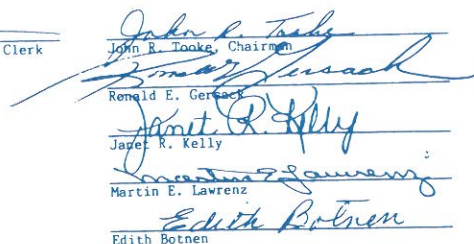 John R. Tooke
Clerk John R. Tooke, Chairman
Ronald E. Gersack
Ronald E. Gersack
Janet R. Kelly
Janet R. Kelly
Martin E. Lawrenz
Martin E. Lawrenz
Edith Botnen
Edith Botnen